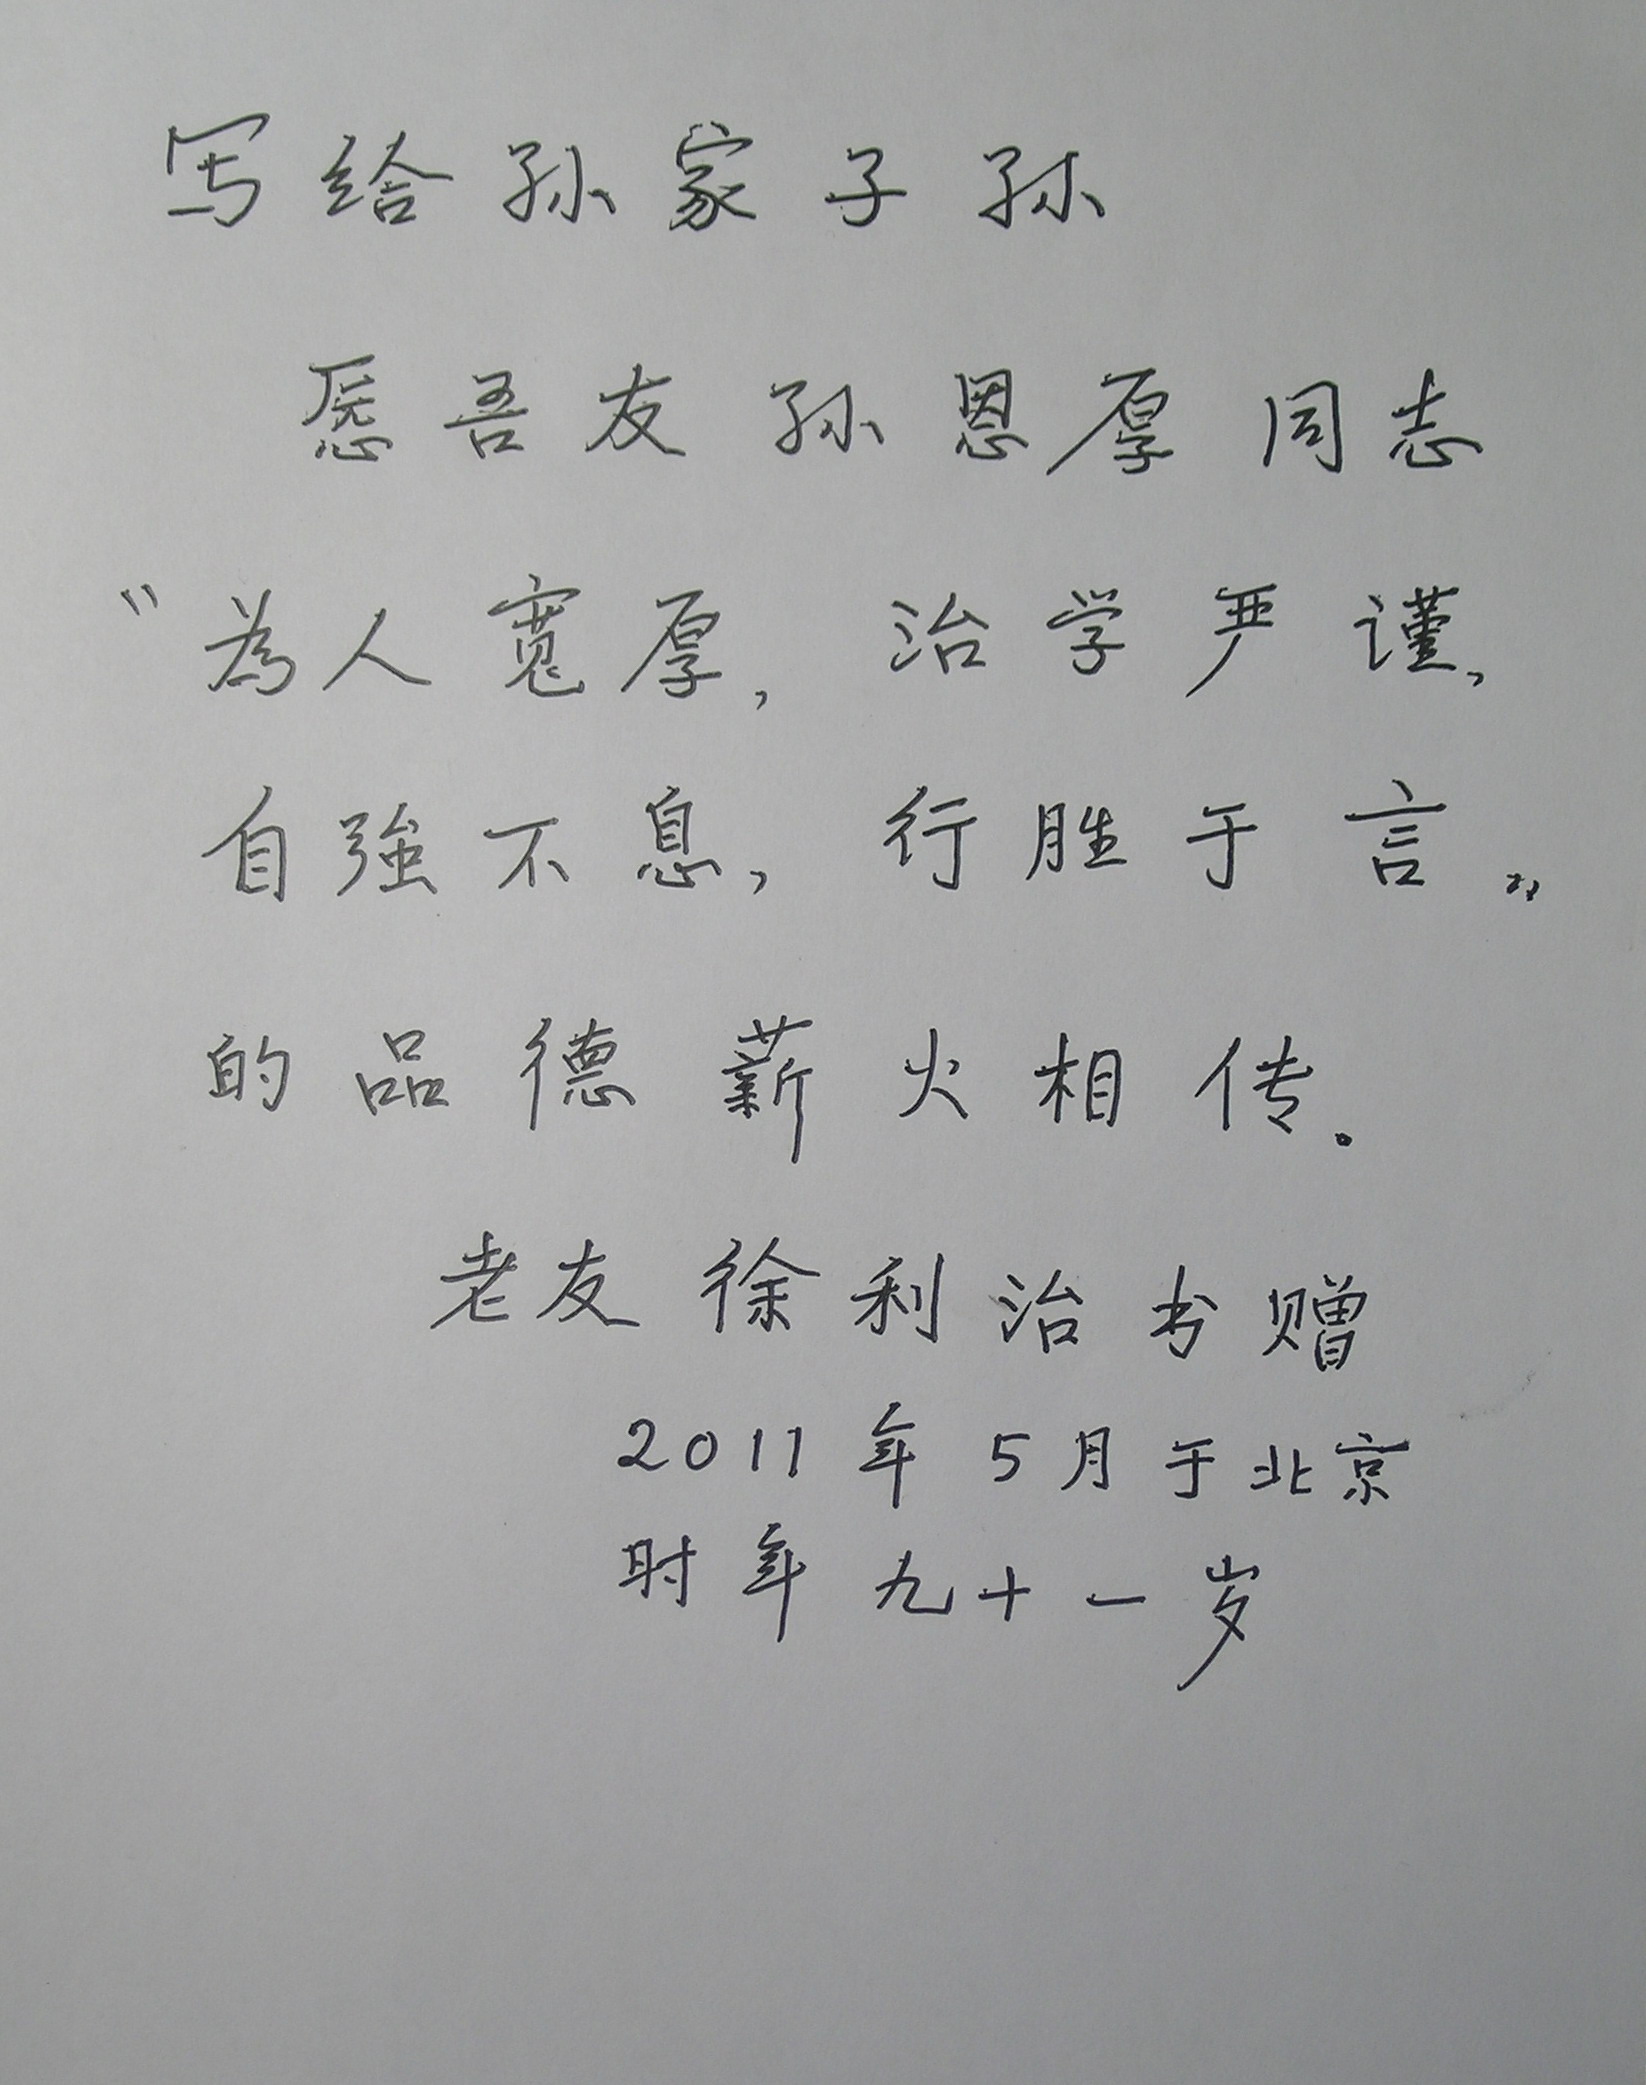 写给孙家子孙
愿吾友孙恩厚同志
“為人寬厚，治学严谨，
自強不息，行胜于言”
的品德薪火相传。
老友徐利治书赠
2011年5月于北京
时年九十一岁